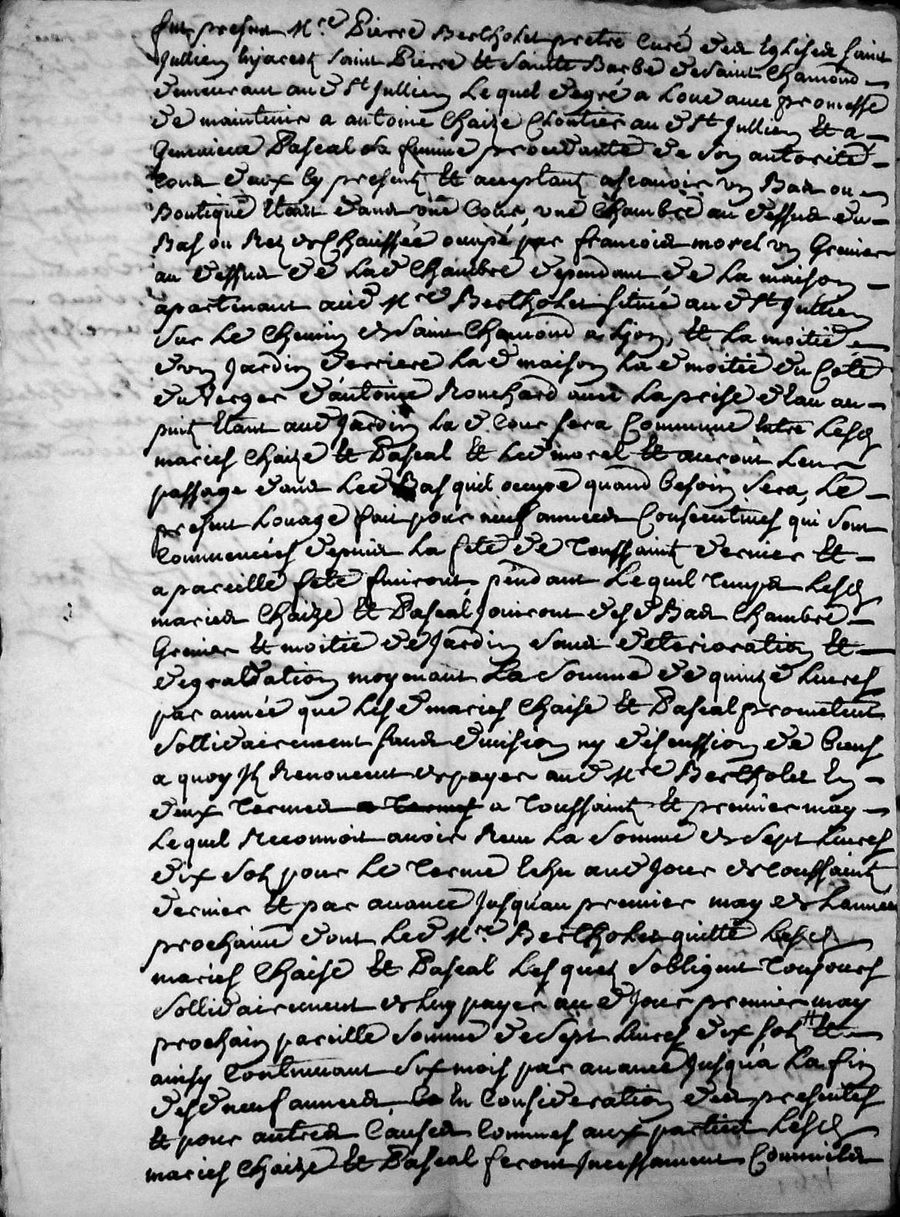 fut present Mre Pierre Bertholet pretre Curé des Eglises saint
Jullien en jarest Saint Pierre et sainte Barbe de saint Chamond
demeurant au d St Jullien Lequel de gré a Loué avec promesse
de maintenir a antoine Chaize Cloutier au d St Jullien et a
Genevieve Pascal sa femme procedante de son autorité
tous deux Cy presents et acceptants ascavoir un Bas ou
Boutique Etant dans une Cour, une Chambre au dessus du
Bas ou Rez de Chaussée ocupé par francois morel un Grenier
au dessus de La d Chambre dependant de La maison
apartenant aud Mre Bertholet située au d St Jullien
sur Le Chemin de saint Chamond a Lyon, et La moitié
d'un Jardin derriere La d maison La d moitié du Coté
du Verger d'antoine Rouchard avec La prise d'eau au
puits Etant aud Jardin La d Cour sera Commune entre Lesd
mariés Chaize et Pascal et Led morel et auront Leur
passage dans Led Bas qu'il occupe quand besoin sera, Le
present Louage fait pour neuf années Consecutives qui sont
Commencées depuis La fete de Toussaint dernier et
a pareille fete finiront pendant Lequel temps Lesd
mariés Chaize et Pascal Jouiront desd Bas Chambre
Grenier et moitié de Jardin sans deterioration et
degradation moyenant La somme de quinze Livres
par année que Lesd mariés Chaise et Pascal promettent
sollidairement sans division ny discussion de biens
a quoy Ils Renoncent de payer aud Mre Bertholet En
deux termes a Toussaint et premier may
Lequel Reconnoit avoir Receu La somme de sept Livres
dix sols pour Le terme Echu aud Jour de Toussaint
dernier et par avance Jusqu'au premier may de L'année
prochaine dont Led Mre Bertholet quitte Lesd
mariés Chaise et Pascal Lesquels s'obligent toujours
sollidairement de Luy payer au d Jour premier may
prochain pareille somme de sept Livres dix sols # et
ainsy Continuant six mois par avance Jusqu'a La fin
desd neuf années En Consideration des presentes
et pour autres Causes Connues aux parties Lesd
mariés Chaize et Pascal feront Incessament